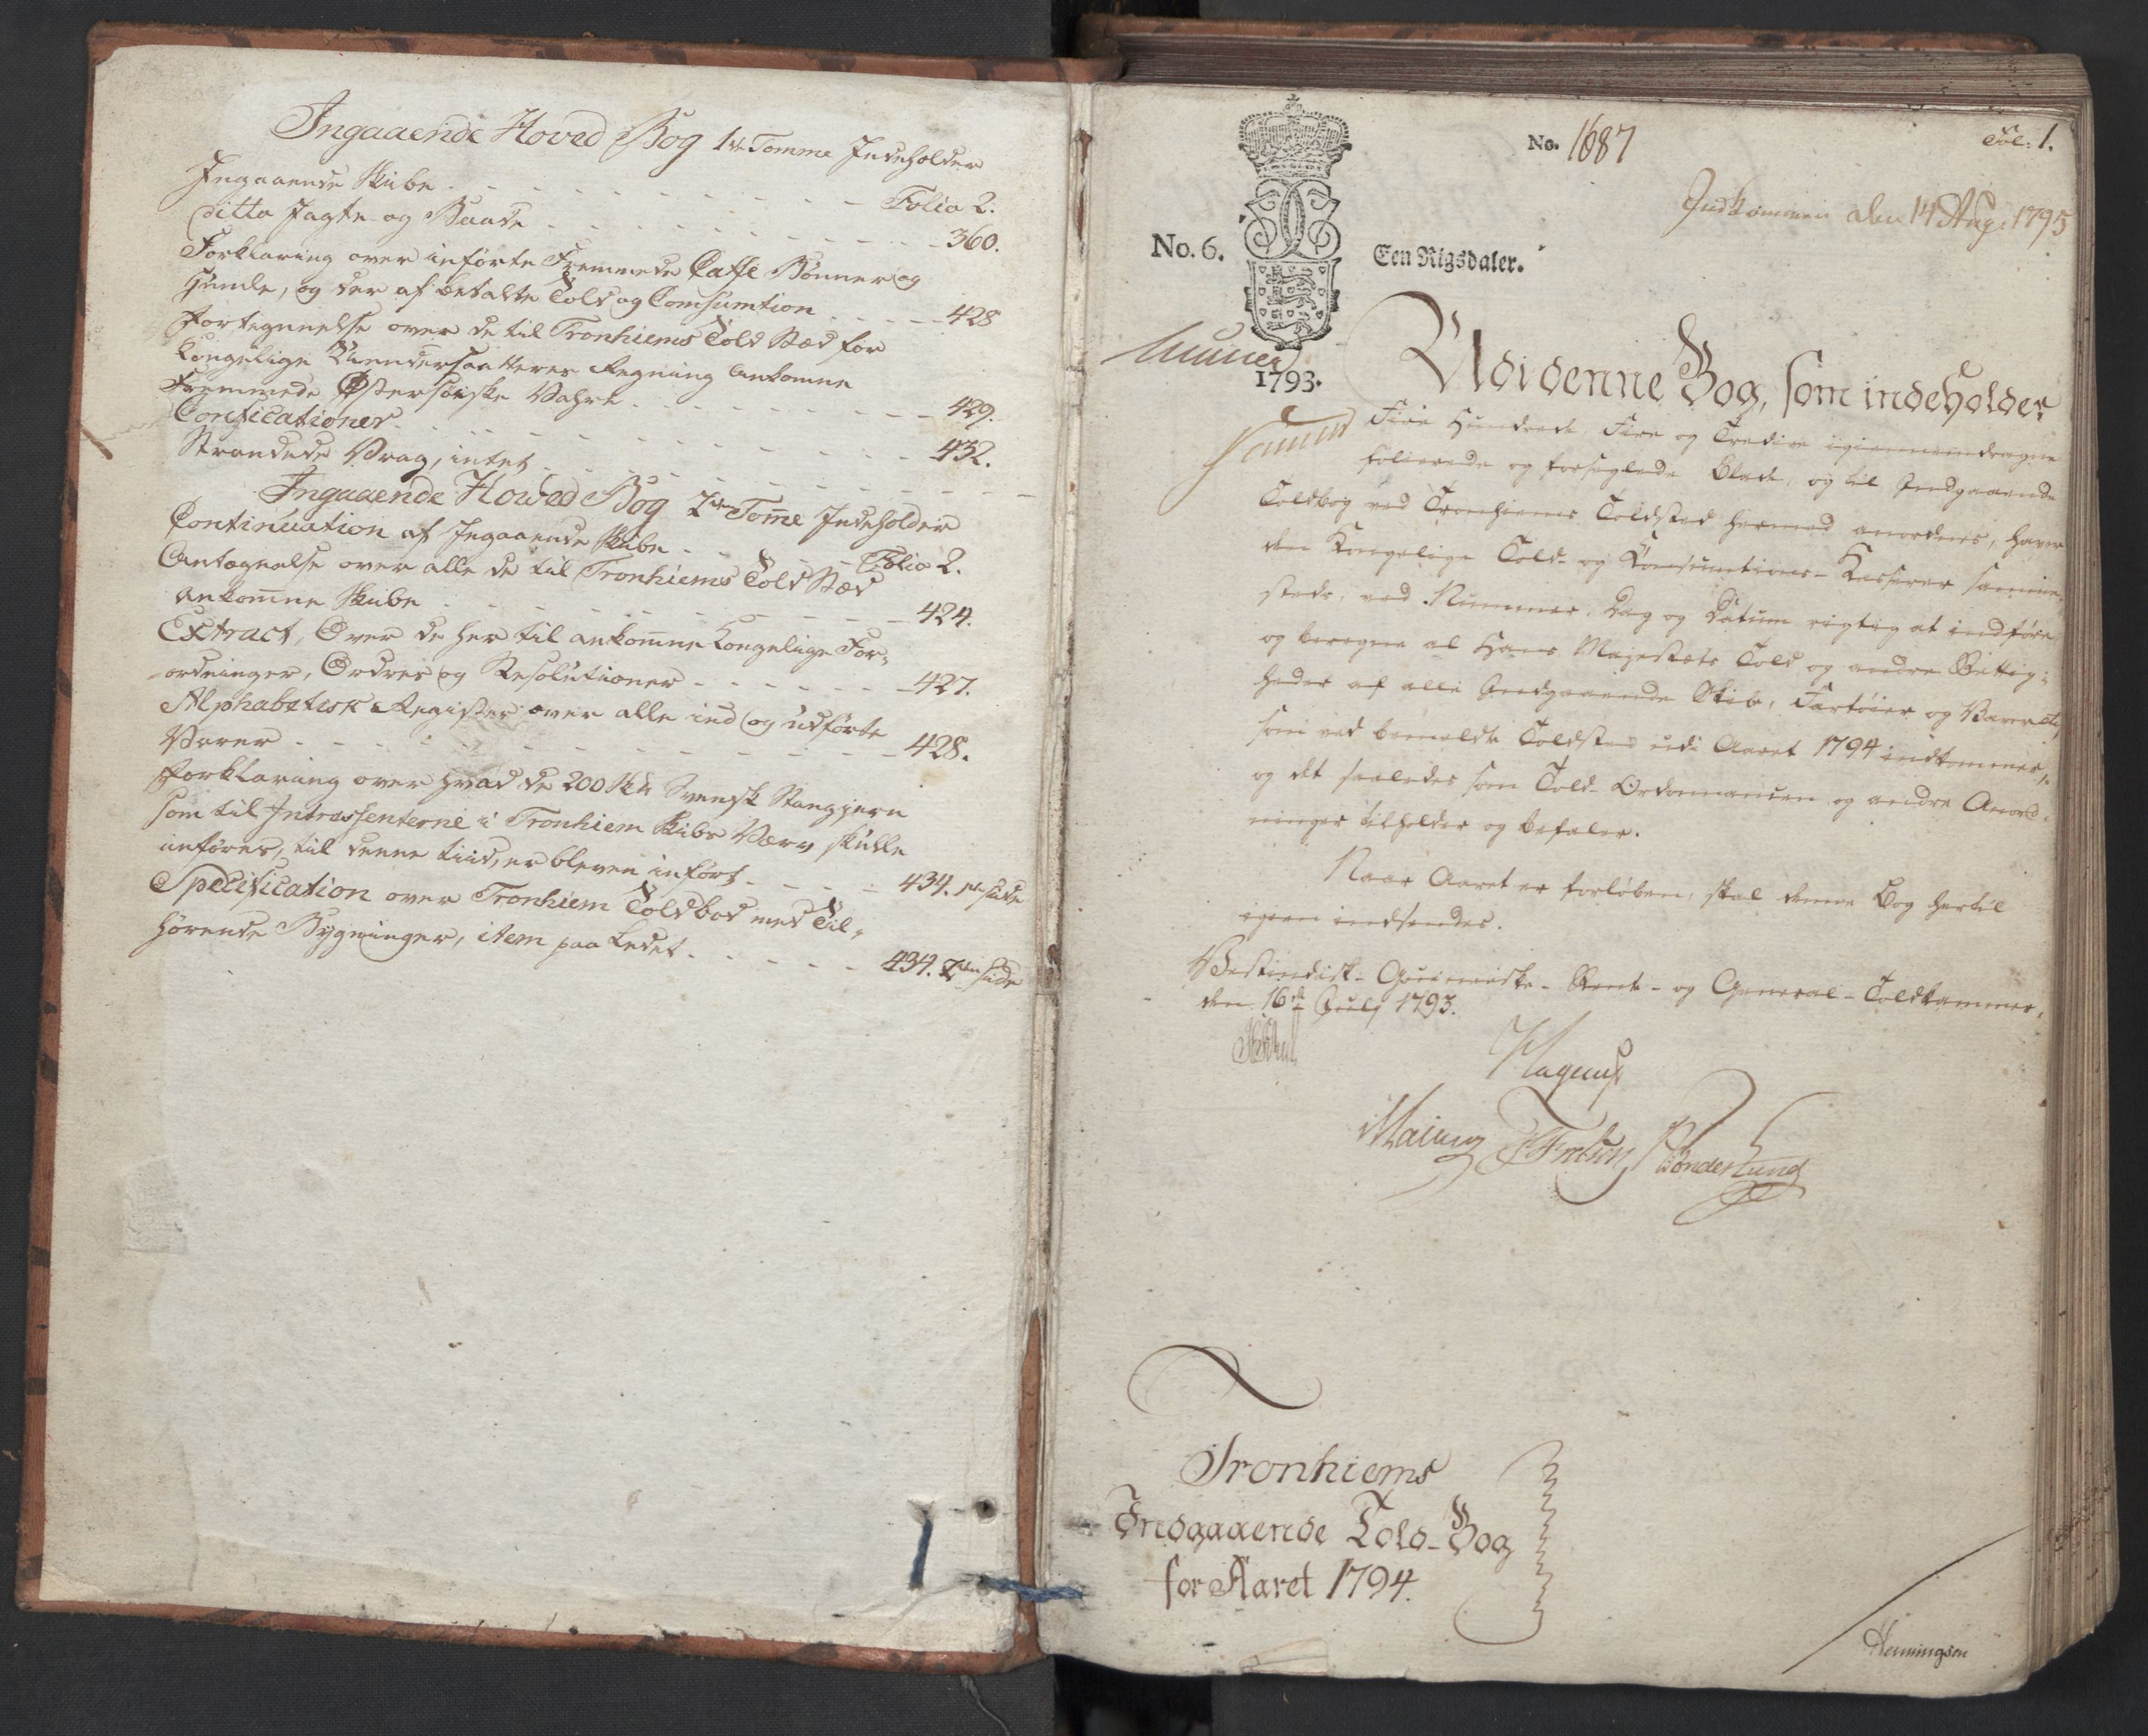 Ingaaende Hoved Bog 1ste Tomme Indeholder
Ingaaende Skibe - - - Folio 2.
Ditto Jagte og Baade - - - 360.
Forklaring over inførte Fremmede Caffe Bønner og
Humle, og der af betalte Told og Comsumtion - - - 428
Fortegnelse over de til Tronhiems Told Stæd for
Kongelige Undersaatteres Regning Ankomne
Fremmede Østersøiske Vahre - - - 429.
Conficationer - - - 432.
Strandede Vrag, intet - - -
Ingaaende Howed Bog 2den Tom̄e Indeholder
Continuation af Ingaaende Skibe - - - Folio 2.
Antægnelse over alle de til Tronhiems Told Stæd
Ankom̄ne Skibe - - - 424.
Extract, Over de her til ankom̄ne Kongelige For-
ordninger, Ordres og Resolutioner - - - 427.
Alphabetisk Register over alle ind og udførte
Varer - - - 428.
Forklaring over hvad de 200 Sk℔ Svensk Stangjern
som til Intressenterne i Tronhiem Skibs Værv skulle
inføres, til denne tiid, er bleven inført - - - 434. 1ste side
Specification over Tronhiem Toldbod med Til-
hørende Bygninger, item paa Ledet - - - 434. 2den side
No. 1687
Fol: 1.
Indkommen den 14 Aug: 1795
No. 6.
Een Rigsdaler.
1793.
Udi denne Bog, som indeholder
Fire Hundrede Fire og Tredive igiennemdragne
folierede og forseglede Blade, og til Indgaaende
Toldbog ved Tronhiems Toldsted hermed anordnes, haver
den Kongelige Told- og Konsumtions-Kasserer samme-
steds, ved Nummer, Dag og Datum rigtig at indføre
og beregne al Hans Majestæts Told og andre Rettig-
heder af alle Indgaaende Skibe, Fartøier og Varer etc,
som ved bemeldte Toldsted udi Aaret 1794 indkommer,
og det saaledes som Told-Ordonnancen og andre Anord-
ninger tilholder og befaler.
Naar Aaret er forløben, skal denne Bog hertil
igien indsendes.
Vestindisk-Guineiske-Rente- og General-Toldkammer,
den 16de July 1793.
Hagerup
Sønderlund
Tronhiems
Indgaaende Told-Bog
for Aaret 1794.
Henningsen